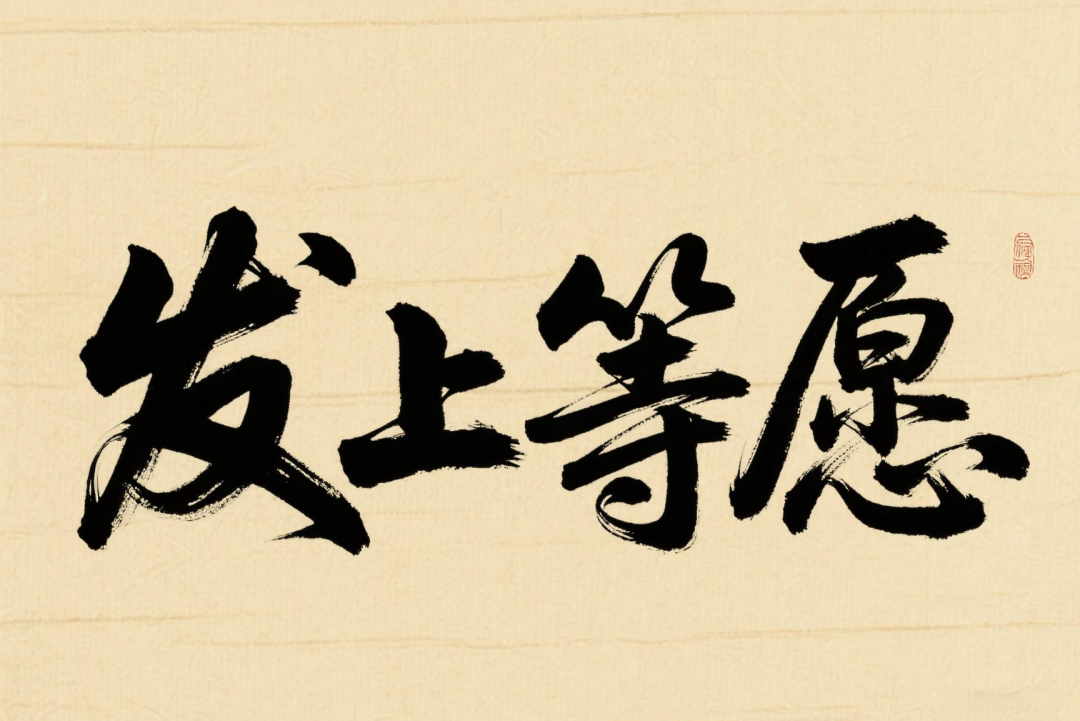 发上等愿